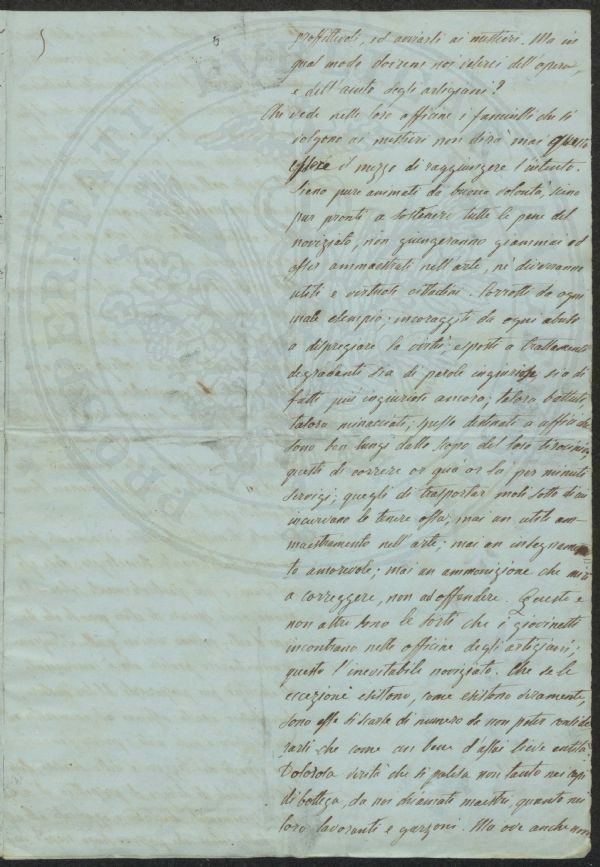 5
proffittevoli, ed avviarli ai mestieri. Ma in
qual modo dovremo noi valerci dell'opera,
e dell'aiuto degli artigiani?
Chi vede nelle loro officine i fanciulli che si
volgono ai mestieri non dirà mai questo
essere il mezzo di raggiungere l'intento.
Sieno pure animati da buona volontà, sieno
pur pronti a sostenere tutte le pene del
noviziato, non giungeranno giammai ad
esser ammaestrati nell'arte, nè diverranno
utili e virtuosi cittadini. Corrotti da ogni
male esempio; incoraggiti da ogni abuso
a dispregiare la virtù; esposti a trattamenti
degradanti sia di parole ingiuriose, sia di
fatti più ingiuriosi ancora; talora battuti
talora minacciati; spesso destinati a uffici che
sono ben lungi dallo scopo del loro tirocinio,
questi di correre or quà or là per minuti
servigi; quegli di trasportar moli sotto di cui
incurvano le tenere ossa; mai un utile am-
maestramento nell'arte; mai un insegnamen-
to amorevole; mai un ammonizione che miri
a correggere, non ad offendere. Queste e
non altre sono le sorti che i giovinetti
incontrano nelle officine degli artigiani;
questo l'inevitabile noviziato. Che se le
eccezioni esistono, come esistono veramente,
sono esse sì scarse di numero da non poter conside
rarli che come un bene d'assai lieve entità.
Dolorosa verità che si palesa non tanto nei capi
di bottega, da noi chiamati maestri, quanto nei
loro lavoranti e garzoni. Ma ove anche non
PROSPERITATI